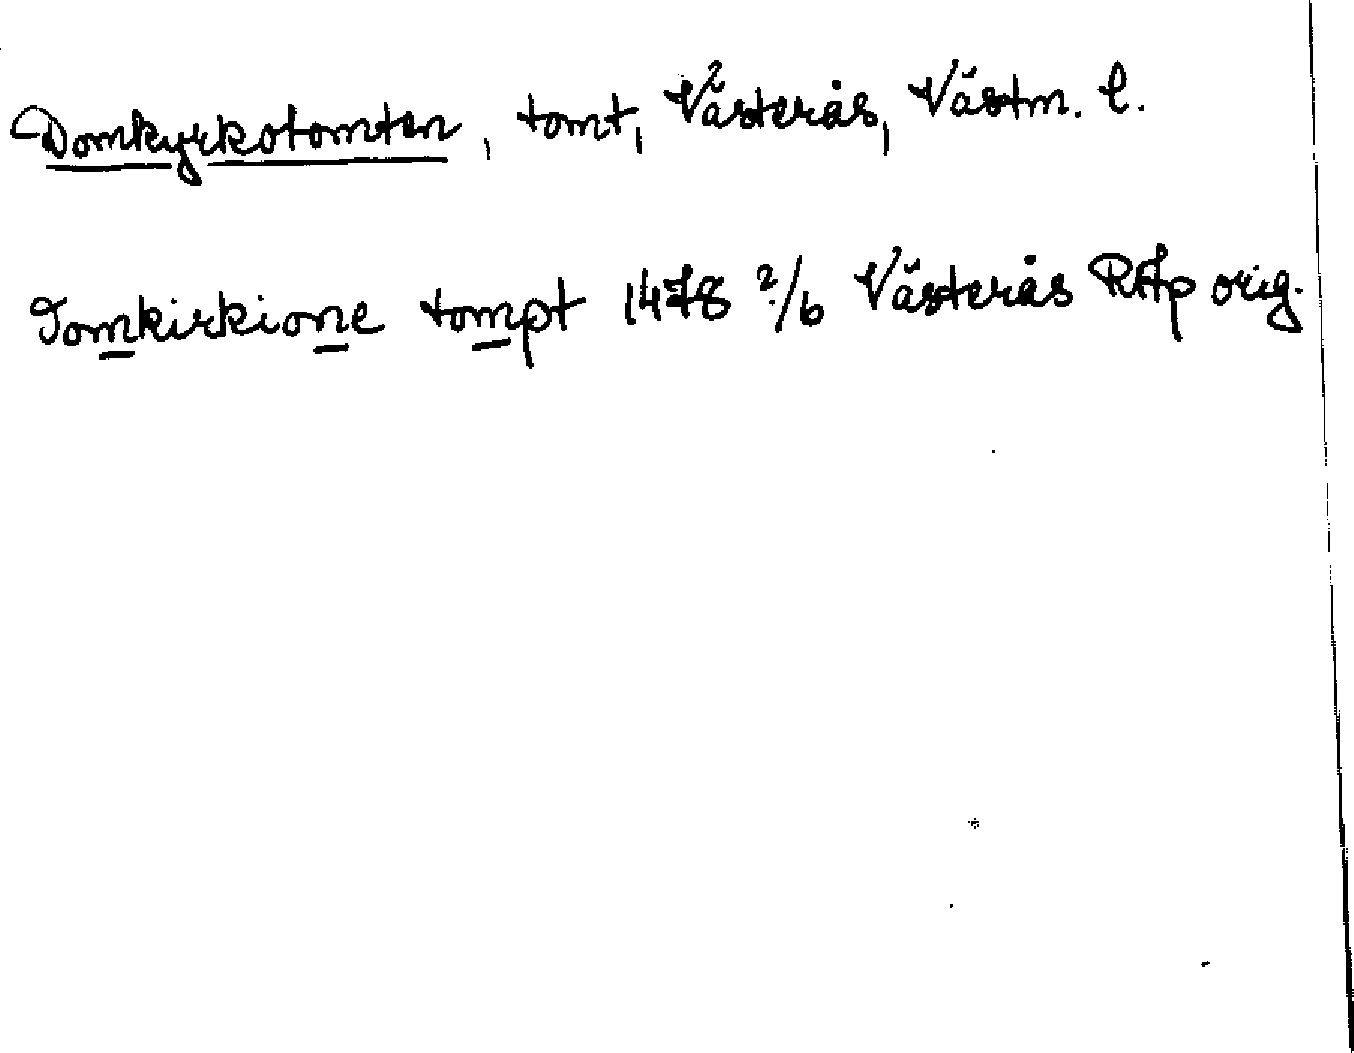 Domkyrkotomten, tomt, Västerås, Västm. l.
Domkirkione tompt 1478 2/6 Västerås RAp orig.